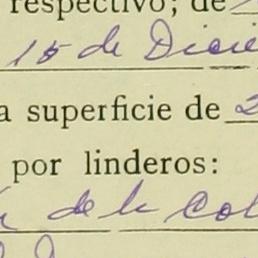 respectivo; de
15 de Dicie
a superficie de 2
por linderos:
de la Col